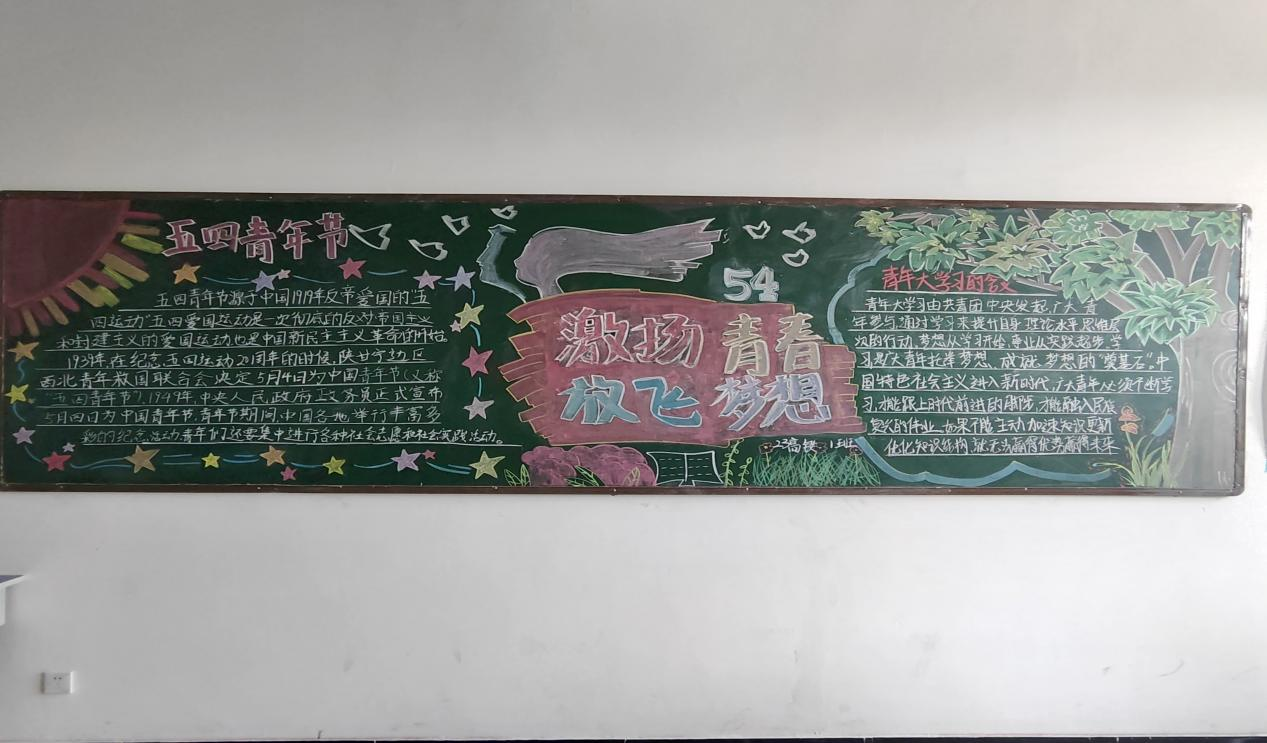 五四青年节
五四青年节源于中国1919年反帝爱国的"五
四运动"五四爱国运动是一次彻底的反对帝国主义
和封建主义的爱国运动也是中国新民主主义革命的开始
1939年,在纪念五四运动20周年的时候,陕甘宁边区
西北青年救国联合会决定5月4日为中国青年节(又称
"五四青年节").1949年中央人民政府政务员正式宣布
5月四日为中国青年节,青年节期间中国各地举行丰富多
的纪念活动,青年们还要集中进行各种社会志愿和社会实践活动。
54
激扬 青春
放飞 梦想
1班
青年大学习的含义
青年大学习由共青团中央发起,广大青
年参与,通过学习来提升自身理论水平思维层
次的行动,梦想从学习开始,事业从实践起步,学
习是广大青年托举梦想,成就梦想的"奠基石",中
国特色社会主义进入新时代,广大青年必须不断学
习,才能跟上时代前进的脚步,才能融入民族
复兴的伟业,如果不能主动加快知识更新
优化知识结构,就无法赢得优势赢得未来